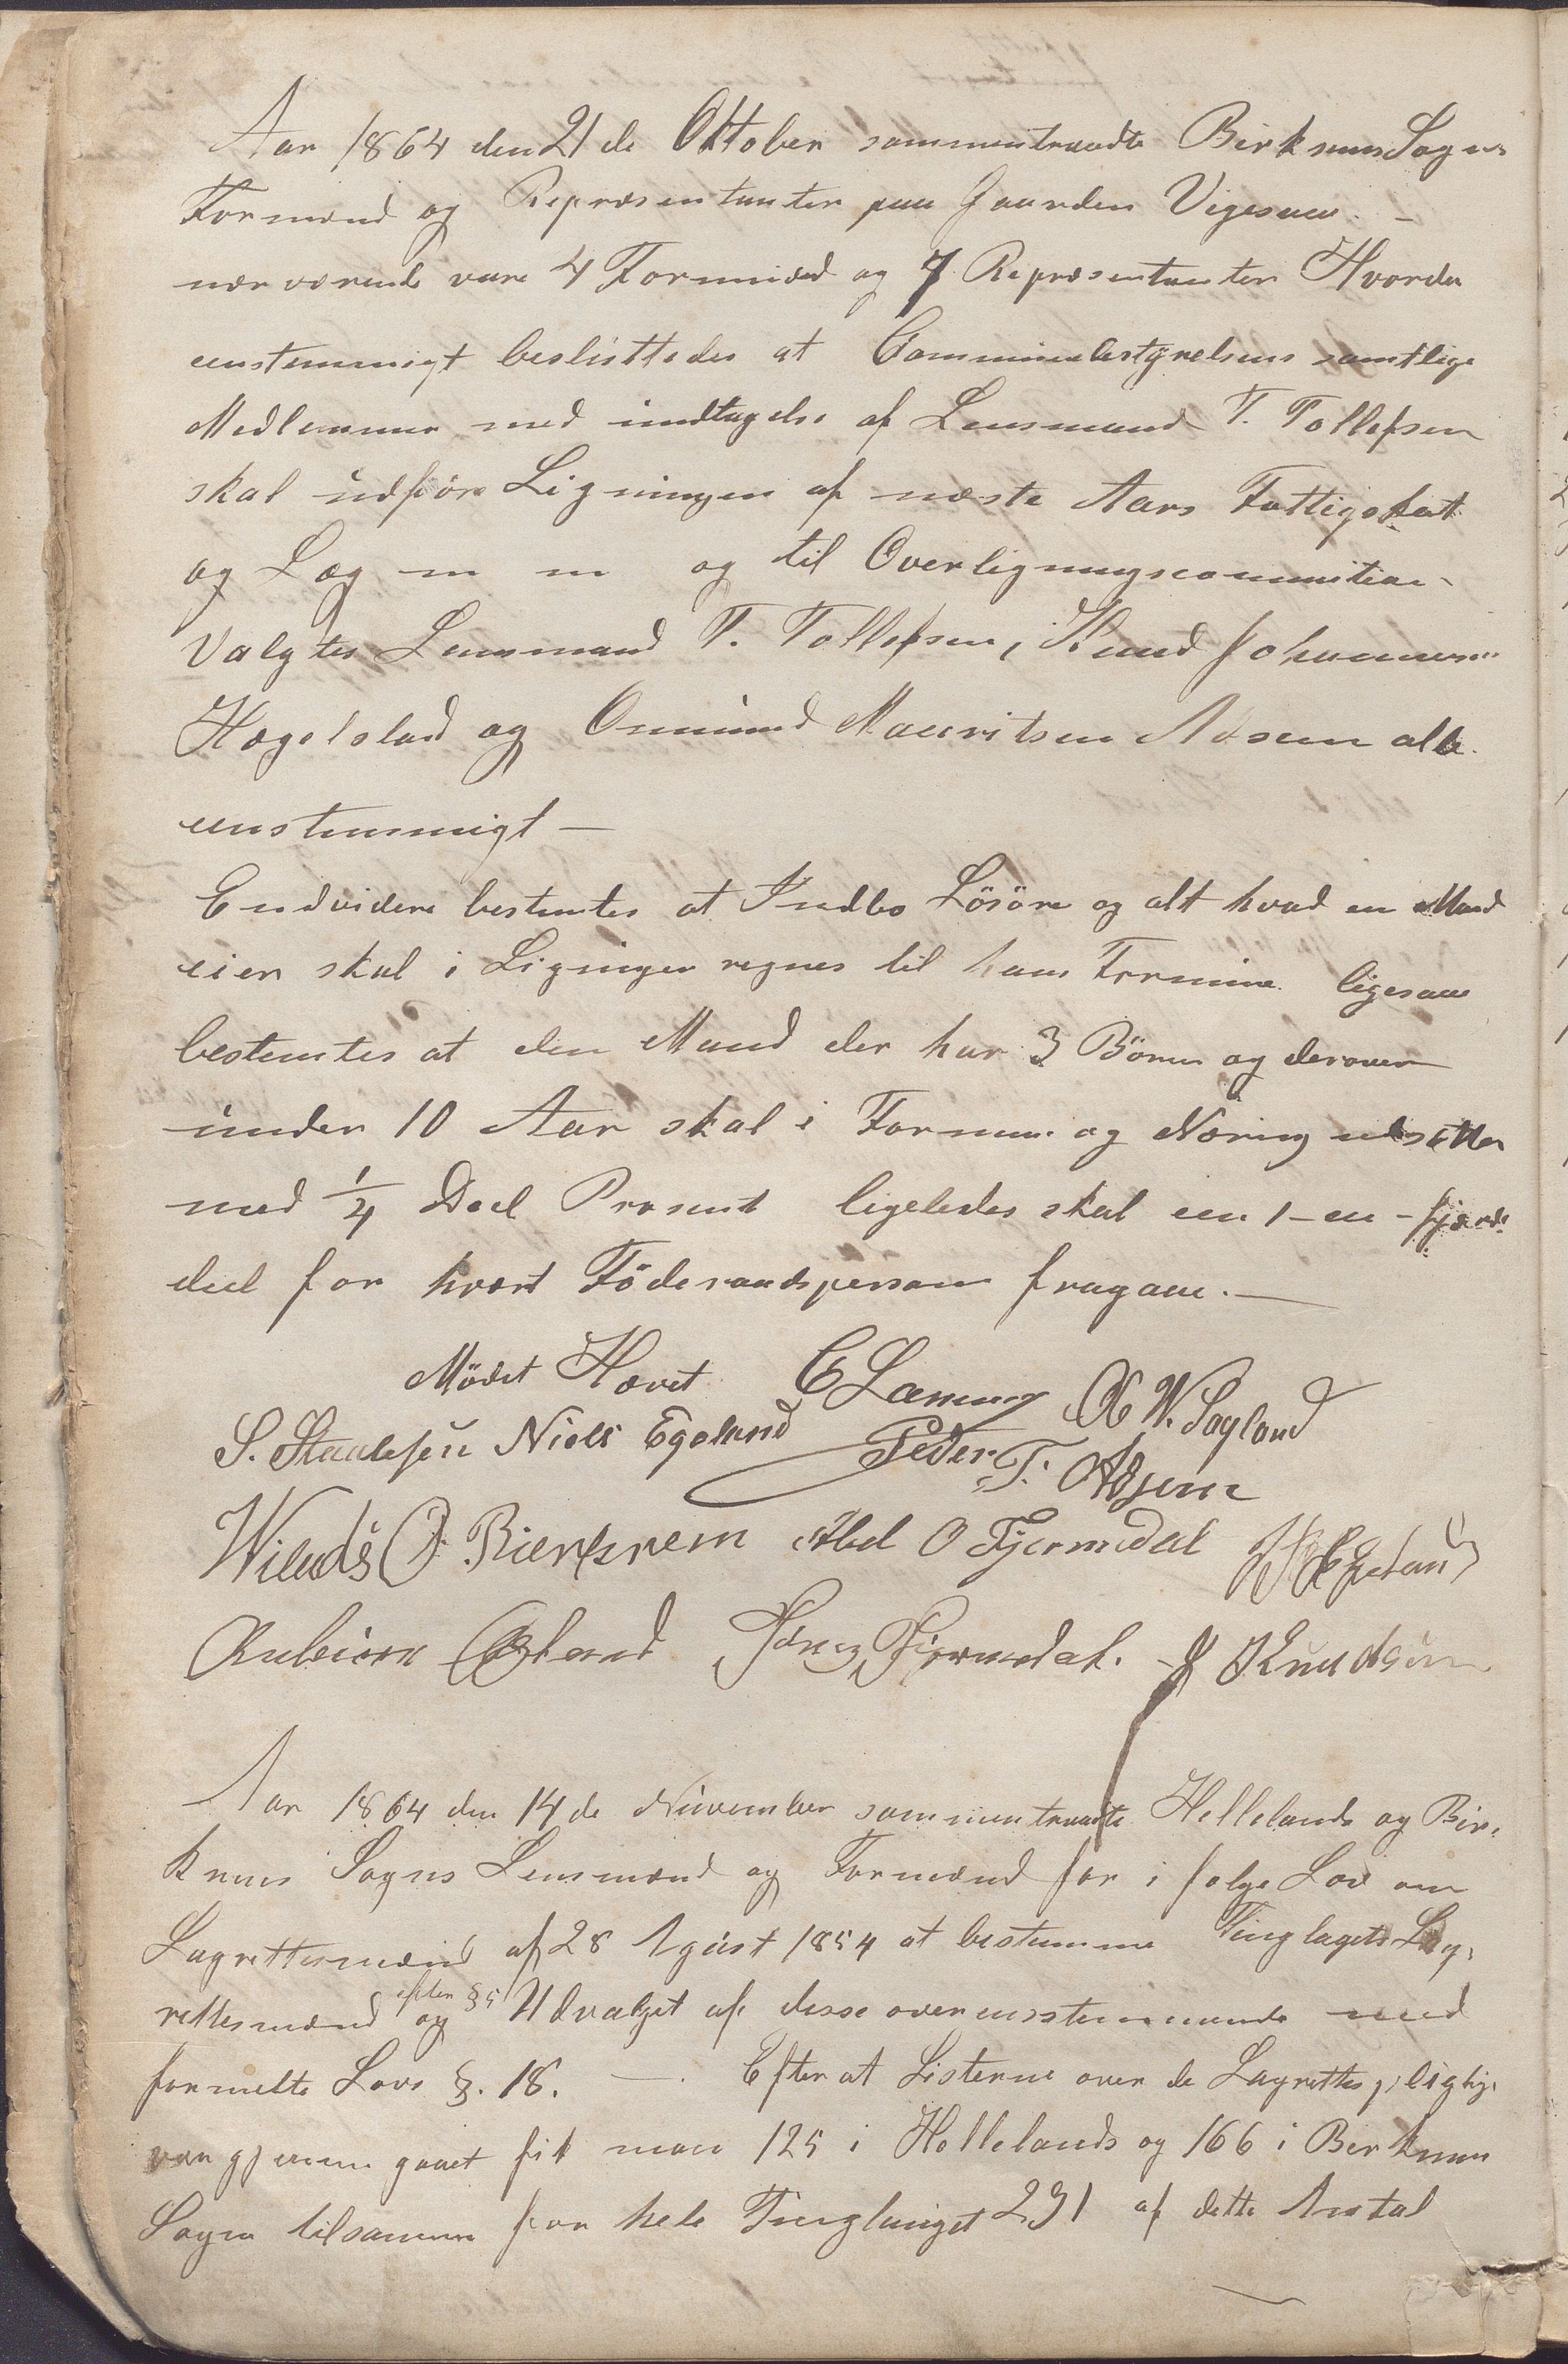 Aar 1864 den 21de Oktober sammentraadte Birkrems Sogns
Formænd og Repræsentanter paa Gaarden Vigesaae. –
nærværende vare 4 Formænd og 7 Repræsentanter Hvorda
eenstemmigt besluttedes at Communebestyrelsens samtlige
Medlemmer med indtagelse af Lensmand T. Tollefsen
skal udføre Ligningen af næste Aars Fattigskat
og Læg m m og til Overligningscommition
Valgtes Lensmand T. Tollefsen, Knud Johannesen
Hægelstad og Ommund Mauritsen Adsem alle
eenstemmigt –
Endvidere bestemtes at Indbo Lösöre og alt hvad en Mand
eier skal i Ligningen regnes til hans Formue ligesaa
bestemtes at den Mand der har 3 Börn og derover
under 10 Aar skal i Formue og Næring nedsættes
med 1/4 Deel Prosent ligeledes skal een 1 – en – fjerde
deel for hvært Föderaadsperson fragaae. –
Mödet Hævet C Læming O W. Sagland
S. Staalesen Niels Egeland Peder T. Adsem
Willads O. Bierkrem Abel O Fjermedal
Gjermedal. J Knudsen
Aar 1864 den 14de November sammentraadte Hellelands og Bir-
krems Sogns Lensmænd og Formænd for i følge Lov om
Lagrettesmænd af 28 Agust 1854 at bestemme Tinglagets Lag-
rettesmænd efter § 5 og Udvalget af disse overensstemmende med
formelte Lovs §. 18. – Efter at Listerne over de Lagrettespligtige
var gjennemgaaet fik man 125 i Hellelands og 166 i Berkrem
Sogn tilsammen for hele Tinglauget 291 af dette Antal